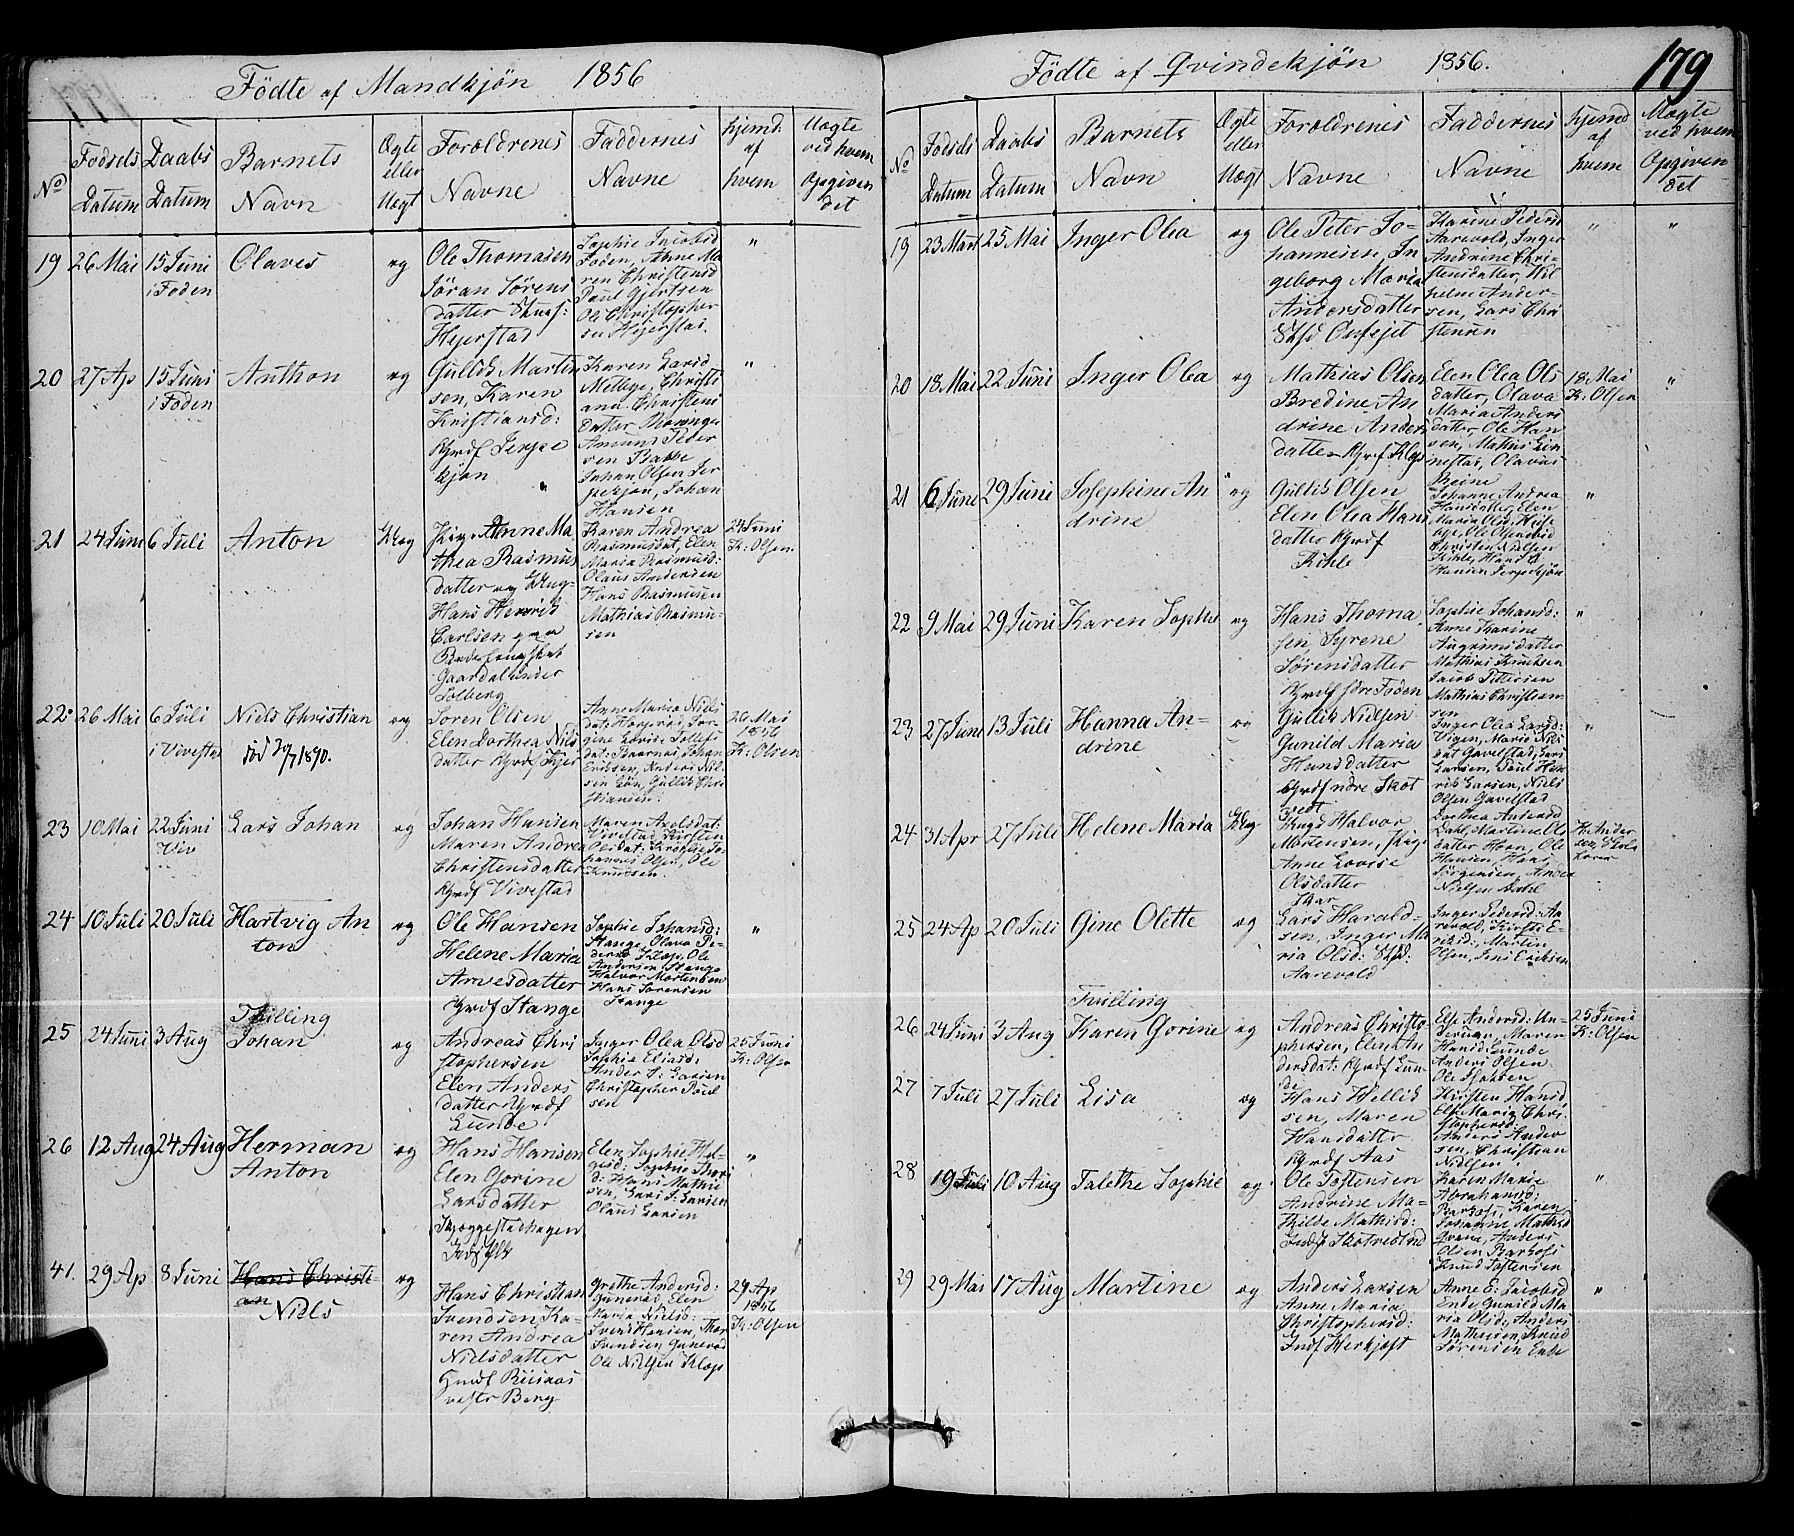 Födte af Mandkjøn 1856
No
Fødsels Datum
Daabs Datum
Barnets Navn
Ægte eller Uægt
Forældrenes Navne
Faddernes Navne
hjemd: af hvem
Uægte ved hvem Opgiven det
19 26 Mai 15 Juni i Foden Olaves æg
Ole Thomasen
Jöran Sörens
datter
Hejerstad
Sophie Jacobsd
Foden, Anne Ma
ren Christensd
Paul Gjertsen
Ole Christopher
sen Hejerstad.
"
20 27 Ap 15 Juni i Foden Anthon æg
Gullik Martin
sen, Karen
Kristiansd:
Grdf Jerpe
kjøn
Karen Larsd
Melbye, Christi
ane Christens
datter
Amund Peder
sen Bakke
Johan Olsen Jer
pekjøn, Johan
Hansen
"
21 24 Juni 6 Juli Anton Uæg
Pige Anne Ma
thea Rasmus
datter og Ung-
Hans Henrik
Carlsen
Gaardalunder
Solberg
Karen Andrea
Rasmusdat, Elen
Maria Rasmusd:
Olaus Andersen
Hans Rasmusen
Mathias Rasmu-
sen
24 Juni
K: Olsen
22 26 Mai 6 Juli i Vivestad Niels Christian æg
död 20/7 1890.
Sören Olsen
Elen Dorthea Niels
datter Grdf Kjer
Anne Maria Niels
dat:
gine Lovise Tollefs
dat:
Eriksen, Anders Niel
sen Gullik Chri
stiansen.
26 Mai
1856
K: Olsen
23 10 Mai 22 Juni Viv Lars Johan æg
Johan Hansen
Maren Andrea
Christensdatter
Grdf Vivestad
Maren Axelsdat:
Vivestad, Kirsten
Olsdat:
hannes Olsen, Ole
Knudsen.
24 10 Juli 20 Juli Hartvig An
ton æg
Ole Hansen
Helene Maria
Arnesdatter
Grdf Stange
Sophie Johansd:
Stange, Olava Pe-
dersd Klop, Ole
Andersen Stange
Halvor Mortensen
Hans Sörensen
Stange
"
Tvilling
25 24 Juni 3 Aug Johan æg
Andreas Chri
stophersen
Elen Anders
datter Grdf
Lunde
Inger Olea Olsd
Sophie Eliasd:
Ander S: Larsen
Christopher Paul
sen
25 Juni
K: Olsen
26 12 Aug 24 Aug Herman
Anton æg
Hans Hansen
Elen Gorine
Larsdatter
Skjæggestadhagen
Elen Sophie Hel-
gesd: Sophie Thor
d: Hans Mathi
sen, Lars S: Larsen
Olaus Larsen
"
41. 29 Ap 8 Juni Hans Christi-
an
Niels æg
Hans Christian
Svendsen, Ka-
ren Andrea
Nielsdatter
vestr Berg
Grethe Andersd:
Gunerød, Elen
Maria Nielsd:
Svend Hansen, Thor
Svendsen Gunerød
Ole Nielsen Klop
29 Ap
1856
K: Olsen
179
Födte af Qvindekjøn 1856.
No
Fødsels Datum
Daabs Datum
Barnets Navn
Ægte eller Uægt
Forældrenes Navne
Faddernes Navne
hjemd af hvem
Uægte ved hvem Opgiven det
19 23 Mart 25 Mai Inger Olea æg
Ole Peter Jo-
hannesen, In
geborg Maria
Andersdatter
Karine Pedersd
Aarevold, Inger
Andrine Chri-
stensdatter, Wil
helm Ander-
sen, Lars Chri
stensen
" "
20 18 Mai 22 Juni Inger Olea æg
Mathias Olsen
Bredine An
drine Anders
datter Grdf Klop
Elen Olea Ols
datter, Olava
Maria Anders
datter, Ole Han
sen, Mathis Lin
nestad, Olavus
Reine
18 Mai
K: Olsen
"
21 6 June 29 Juni Josephine An
drine æg
Gullik Olsen
Elen Olea Hans
datter Grdf
Kihle
Johanne Andrea
Hansdatter, Elen
Maria Olsd,
Christen Nielsen
Kihle, Hans
Hansen Jerpekjøn
"
22 9 Mai 29 Juni Karen Sophie æg
Hans Thoma
sen, Syrene
Sörensdatter
Grdf sdre Foden
Sophie Johansd:
Anne Karine
Mathias Knudsen
Jacob Pettersen
Mathias Christian
sen
"
23 27 Juni 13 Juli Hanna An-
drine æg
Gullik Nielsen
Gunild Maria
Hansdatter
Grdf ndre Skot
vedt
Inger Olea Larsd:
Vigen, Maria Niels
dat Gavelstad, Lars
Larsen, Paul Hen
rik Larsen, Niels
Olsen Gavelstad
"
24 31 Apr 27 Juli Helene Maria Uæg
Ungk Halvor
Mortensen, Pige
Anne Lovise
Olsdatter
Skar
Dorthea Andersd
Dahl, Martine Ols
datter Hoen, Ole
Hansen, Hans
Jörgensen, Anders
Nielsen Dahl
K. Ander
sen, Skole
lærer
25 24 Ap 20 Juli Gine Olette æg
Lars Harald-
sen, Inger Ma
ria Olsd:
Aarevold
Inger Pedersd: Aa
revold, Kirsti E-
riksd:, Martin
Olsen, Jens Eriksen
Tvilling
26 24 Juni 3 Aug Karen Gorine æg
Andreas Christo
phersen, Elen An
dersdat: Grdf Lun-
de
Else Andersd:
Maren
Hansd: Lunde
Anders Olsen
Ole
25 Juni
K: Olsen
27 7 Juli 27 Juli Lisa æg
Hans Hellik
sen, Maren
Hansdatter
Grdf Aas
Kirsten Hansd
Else Maria Chri-
stophersd:
Anders Ander
sen, Christian
Nielsen
28 19 Juli 10 Aug Talethe Sophie æg
Ole Tostensen
Andrine Ma-
thilde Mathisd:
Karen Marie
Abrahamsd:
Karen
Johanne Mathisd
Anders
Olsen
Knud Tostensen
"
29 29 Mai 17 Aug Martine æg
Anders Larsen
Anne Maria
Christophersd:
Indf Herkjøst
Anne E: Jacobsd
Ende, Gunild Ma
ria Olsd:, Anders
Mathisen, Knud
Sörensen Ende
"